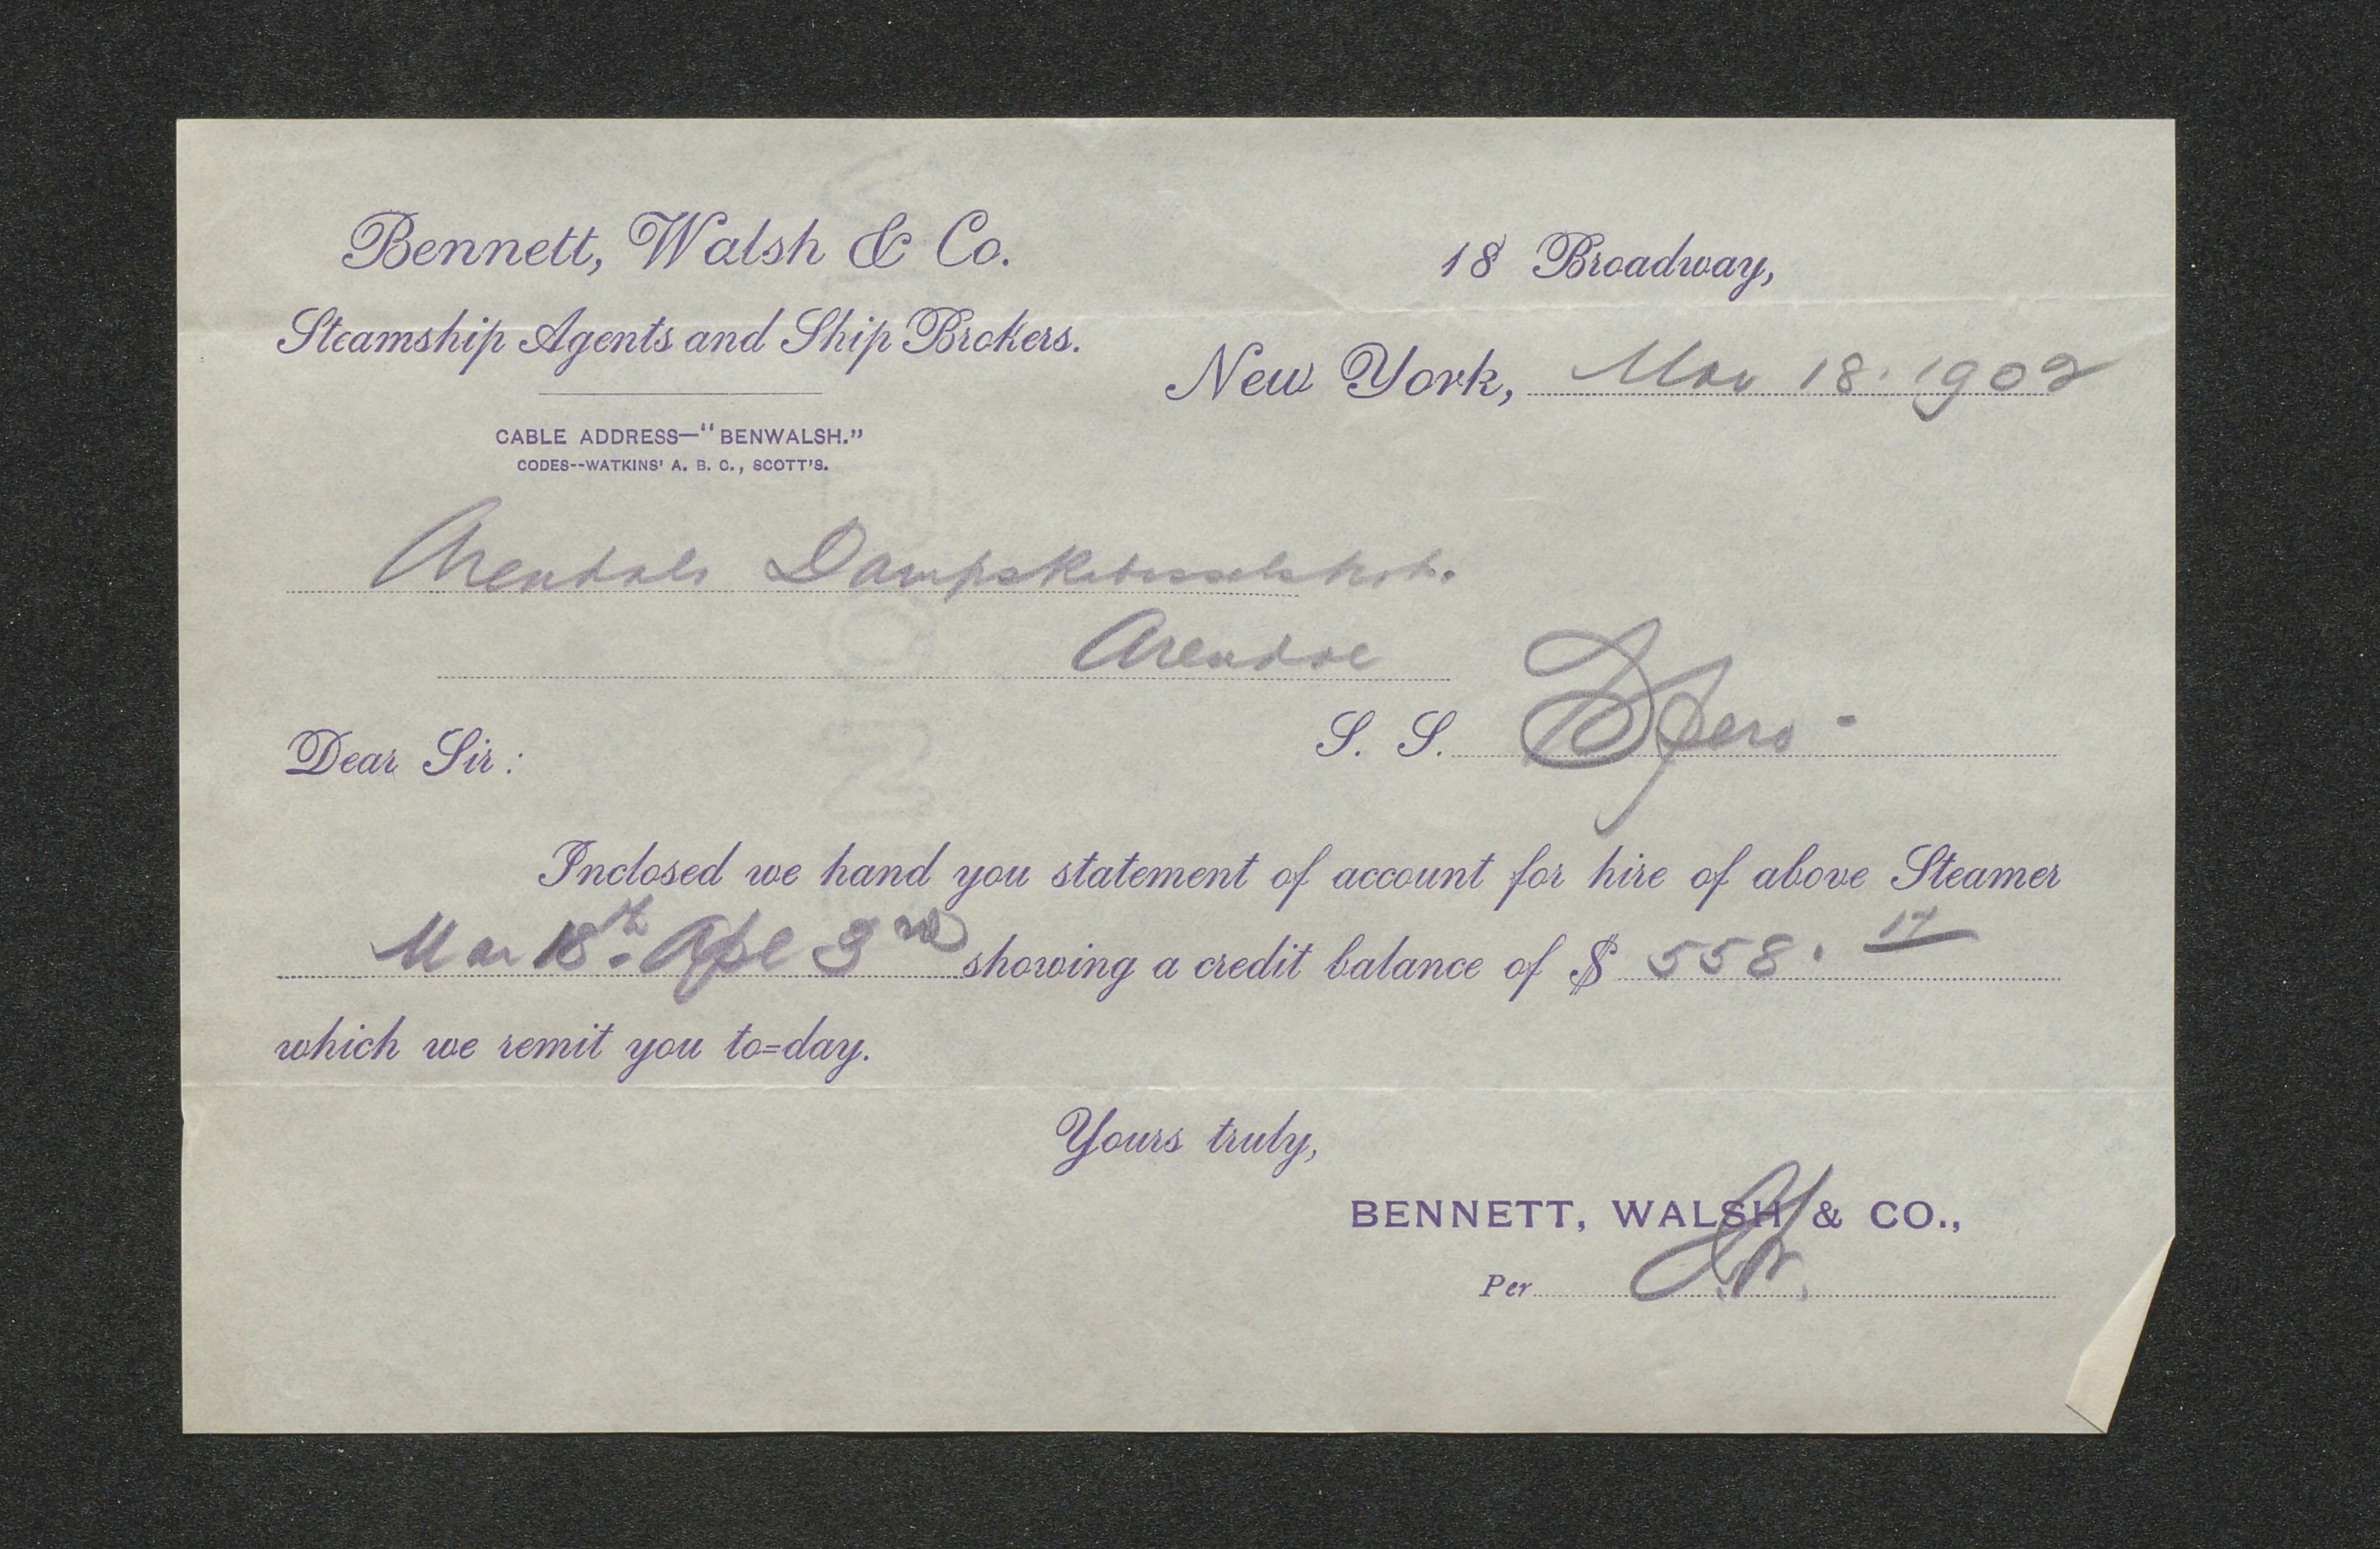 Bennett, Walsh & Co.
Steamship Agents and Ship Brokers.
CABLE ADDRESS—"BENWALSH."
CODES--WATKINS' A. B. C., SCOTT'S.
18 Broadway,
New York, Mar 18. 1902
Arendals Dampskibsselskab.
Arendal
S. S. Spero -
Dear Sir:
Inclosed we hand you statement of account for hire of above Steamer
Mar 18th. Apl 3rd showing a credit balance of $ 558. 17
which we remit you to=day.
Yours truly,
BENNETT, WALSH & CO.,
Per